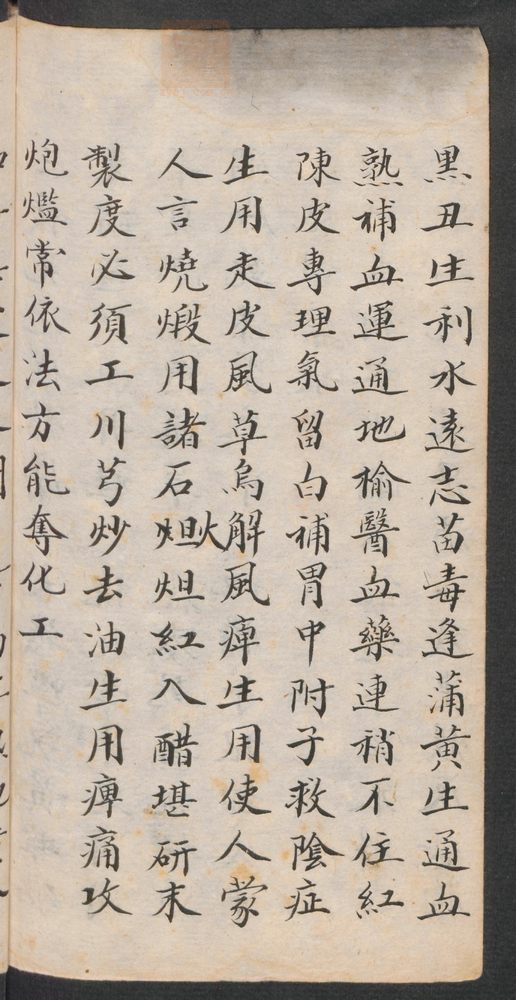 黑丑生利水遠志苗毒逢蒲黃生通血
熟補血運通地榆醫血藥連稍不住紅
陳皮專理氣留白補胃中附子救陰症
生用走皮風草烏解風痺生用使人蒙
人言燒煅用諸石火炟炟紅入醋堪研末
製度必須工川芎炒去油生用痺痛攻
炮爁常依法方能奪化工